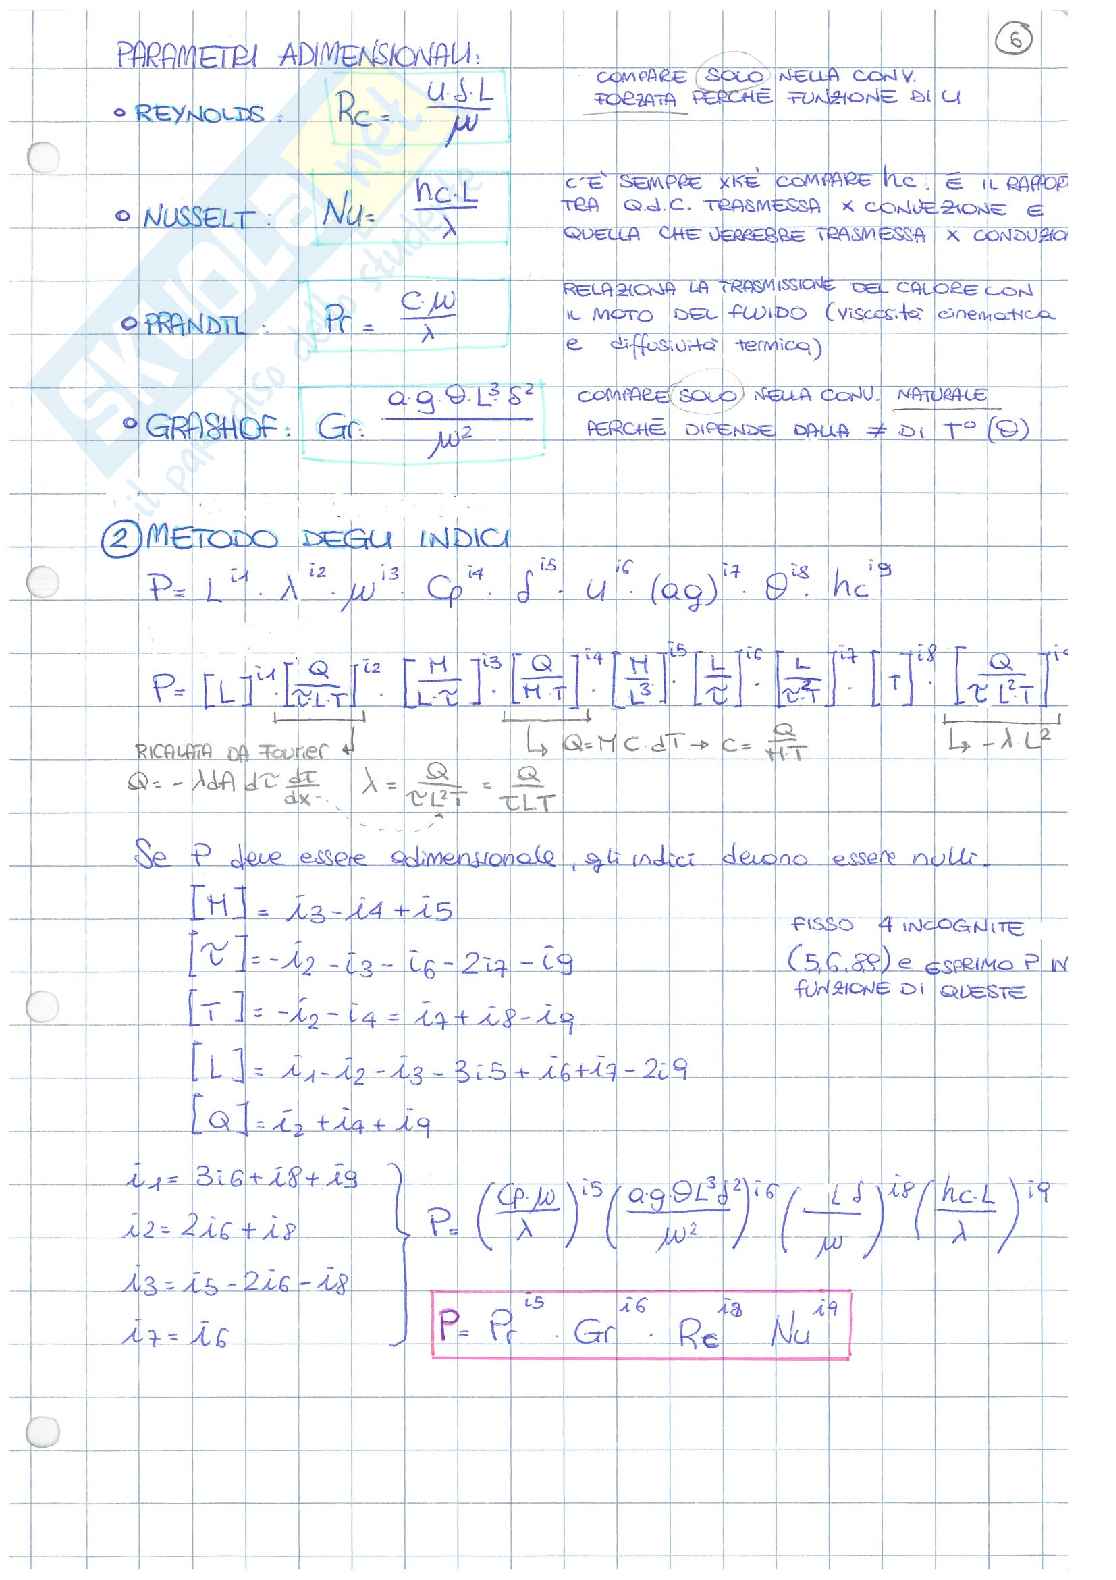 6
PARAMETRI ADIMENSIONALI:
• REYNOLDS: Re = u·δ·L / μ
COMPARE SOLO NELLA CONV.
FORZATA PERCHÉ FUNZIONE DI U
• NUSSELT: Nu = hc·L / λ
C'È SEMPRE XKÉ COMPARE hc. È IL RAPPOR
TRA Q.d.C. TRASMESSA X CONVEZIONE E
QUELLA CHE VERREBBE TRASMESSA X CONDUZIO
• PRANDTL: Pr = C·μ / λ
RELAZIONA LA TRASMISSIONE DEL CALORE CON
IL MOTO DEL FLUIDO (viscosità cinematica
e diffusività termica)
• GRASHOF: Gr: a·g·θ·L³·δ² / μ²
COMPARE SOLO NELLA CONV. NATURALE
PERCHÉ DIPENDE DALLA ≠ DI T° (θ)
SKUOLA.net
il paradiso dello studente
② METODO DEGLI INDICI
P = L^i1 · λ^i2 · μ^i3 · Cp^i4 · δ^i5 · u^i6 · (ag)^i7 · θ^i8 · hc^i9
P = [L]^i1 · [Q / τLT]^i2 · [M / L·τ]^i3 · [Q / M·T]^i4 · [M / L³]^i5 · [L / τ]^i6 · [L / τ²T]^i7 · [T]^i8 · [Q / τL²T]^i9
RICALATA DA Fourier
↳ Q = M C·dT → C = Q / M·T
↳ -λ L²
Q = -λ dA dτ dT/dx λ = Q / τL²T = Q / τLT
Se P deve essere adimensionale, gli indici devono essere nulli.
[M] = i3 - i4 + i5
[τ] = -i2 - i3 - i6 - 2i7 - i9
[T] = -i2 - i4 = i7 + i8 - i9
[L] = i1 - i2 - i3 - 3i5 + i6 + i7 - 2i9
[Q] = i2 + i4 + i9
FISSO 4 INCOGNITE
(5,6,8,9) e ESPRIMO P IN
FUNZIONE DI QUESTE
i1 = 3i6 + i8 + i9
i2 = 2i6 + i8
i3 = i5 - 2i6 - i8
i7 = i6
P = (Cp·μ / λ)^i5 (a·g·θL³δ² / μ²)^i6 (Lδ / μ)^i8 (hc·L / λ)^i9
P = Pr^i5 · Gr^i6 · Re^i8 Nu^i9